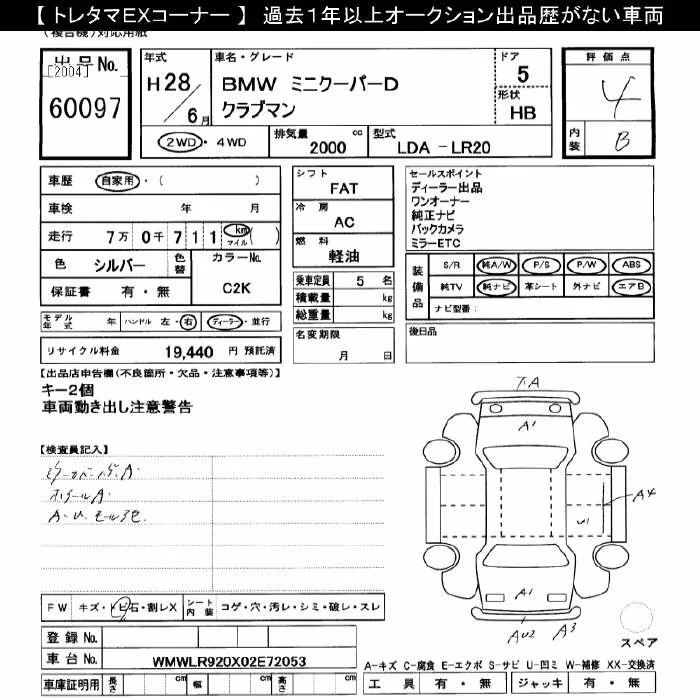 【 トレタマEXコーナー 】 過去1年以上オークション出品歴がない車両
(複合機)対応用紙
出品No.
[2004]
60097
年式
H28/6月
車名・グレード
BMW ミニクーパーD
クラブマン
ドア
5
形状
HB
評価点
4
内装
B
2WD・4WD
排気量 cc
2000
型式
LDA -LR20
車歴 自家用・( )
車検 年 月
走行 7万 0千 7 1 1 km マイル ( )
色 シルバー 色替
カラーNo.
C2K
保証書 有・無
モデル年式 年 ハンドル 左・右 ディーラー・並行
リサイクル料金 19,440 円 預託済
シフト
FAT
冷房
AC
燃料
軽油
乗車定員 5 名
積載量 kg
総重量 kg
名変期限
月 日
セールスポイント
ディーラー出品
ワンオーナー
純正ナビ
バックカメラ
ミラーETC
装備品
S/R 純A/W P/S P/W ABS
純TV 純ナビ 革シート 外ナビ エアB
ナビ型番:
後日品
【出品店申告欄(不良箇所・欠品・注意事項等)】
キー2個
車両動き出し注意警告
【検査員記入】
ホイールA
A・U
FW キズ・トビ石・割レX
シート内装 コゲ・穴・汚レ・シミ・破レ・スレ
登録No.
車台No. WMWLR920X02E72053
車庫証明用 長さ cm 幅 cm 高さ cm
A
A1
A4
U1
A1
AU2 A3
スペア
A-キズ C-腐食 E-エクボ S-サビ U-凹ミ W-補修 XX-交換済
工具 有・無 ジャッキ 有・無